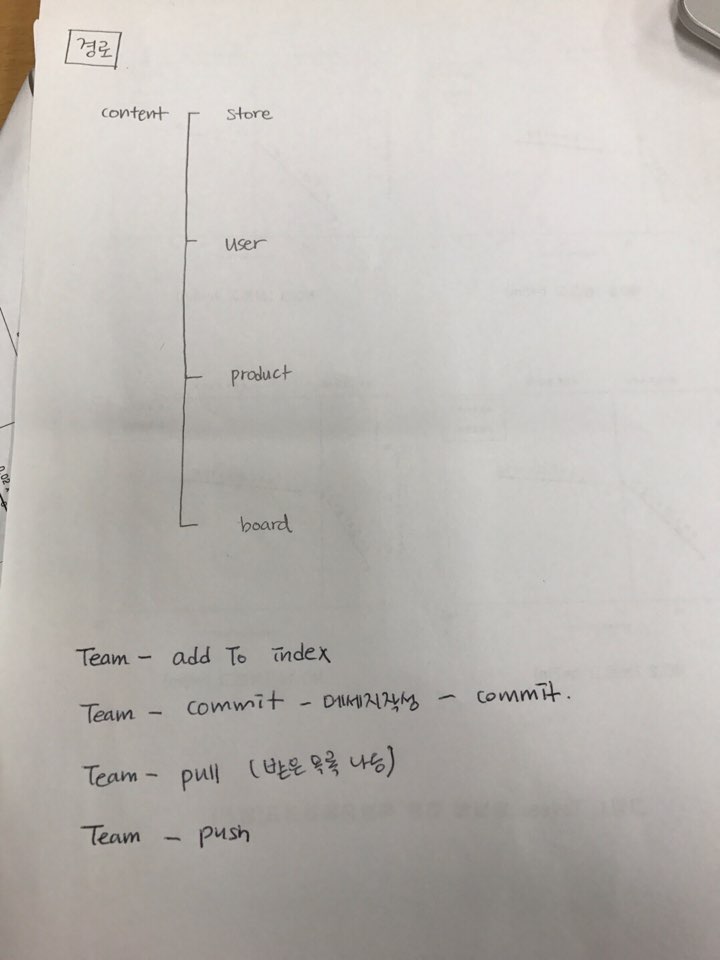 경로
content store
user
product
board
Team - add To index
Team - commit - 메세지작성 - commit.
Team - pull (받은 목록 나옴)
Team - push